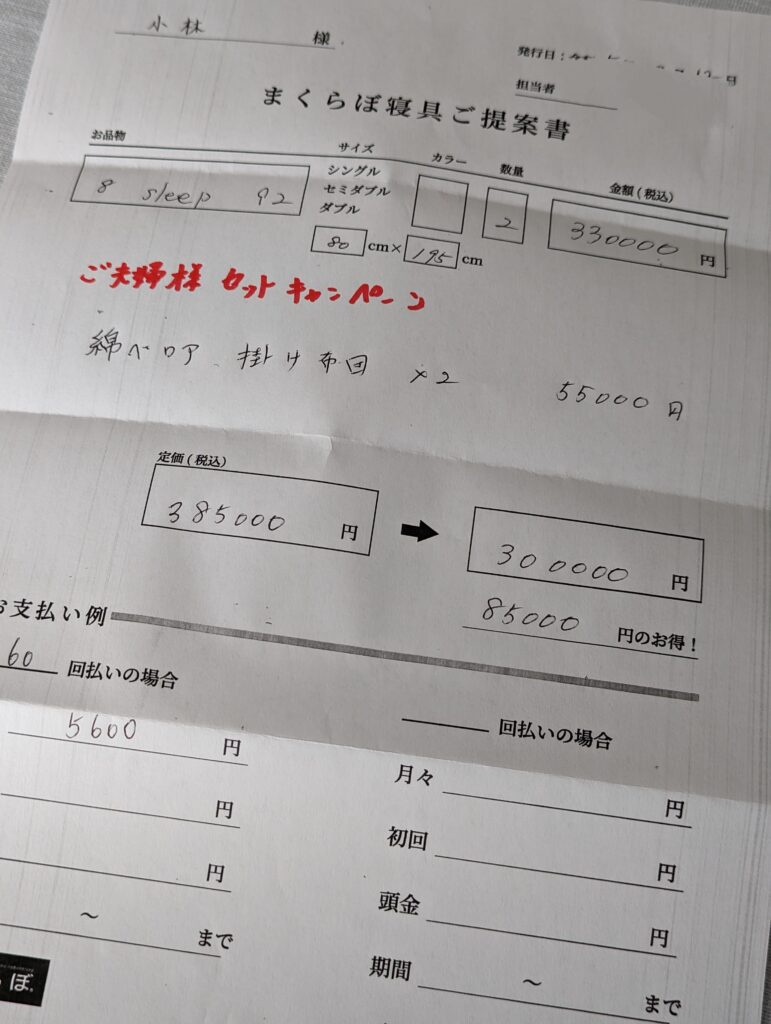 小林 様
発行日:
担当者
まくらぼ寝具ご提案書
お品物 サイズ カラー 数量 金額(税込)
シングル
セミダブル
ダブル
8 sleep 92 2 330000 円
80 cm× 195 cm
ご夫婦様 セットキャンペーン
綿ベロア 掛け布団 ×2 55000円
定価(税込)
385000 円 → 300000 円
85000 円のお得!
お支払い例
60 回払いの場合 回払いの場合
5600 円
月々 円
円
初回 円
円
頭金 円
~ まで
期間 ~ まで
ぼ